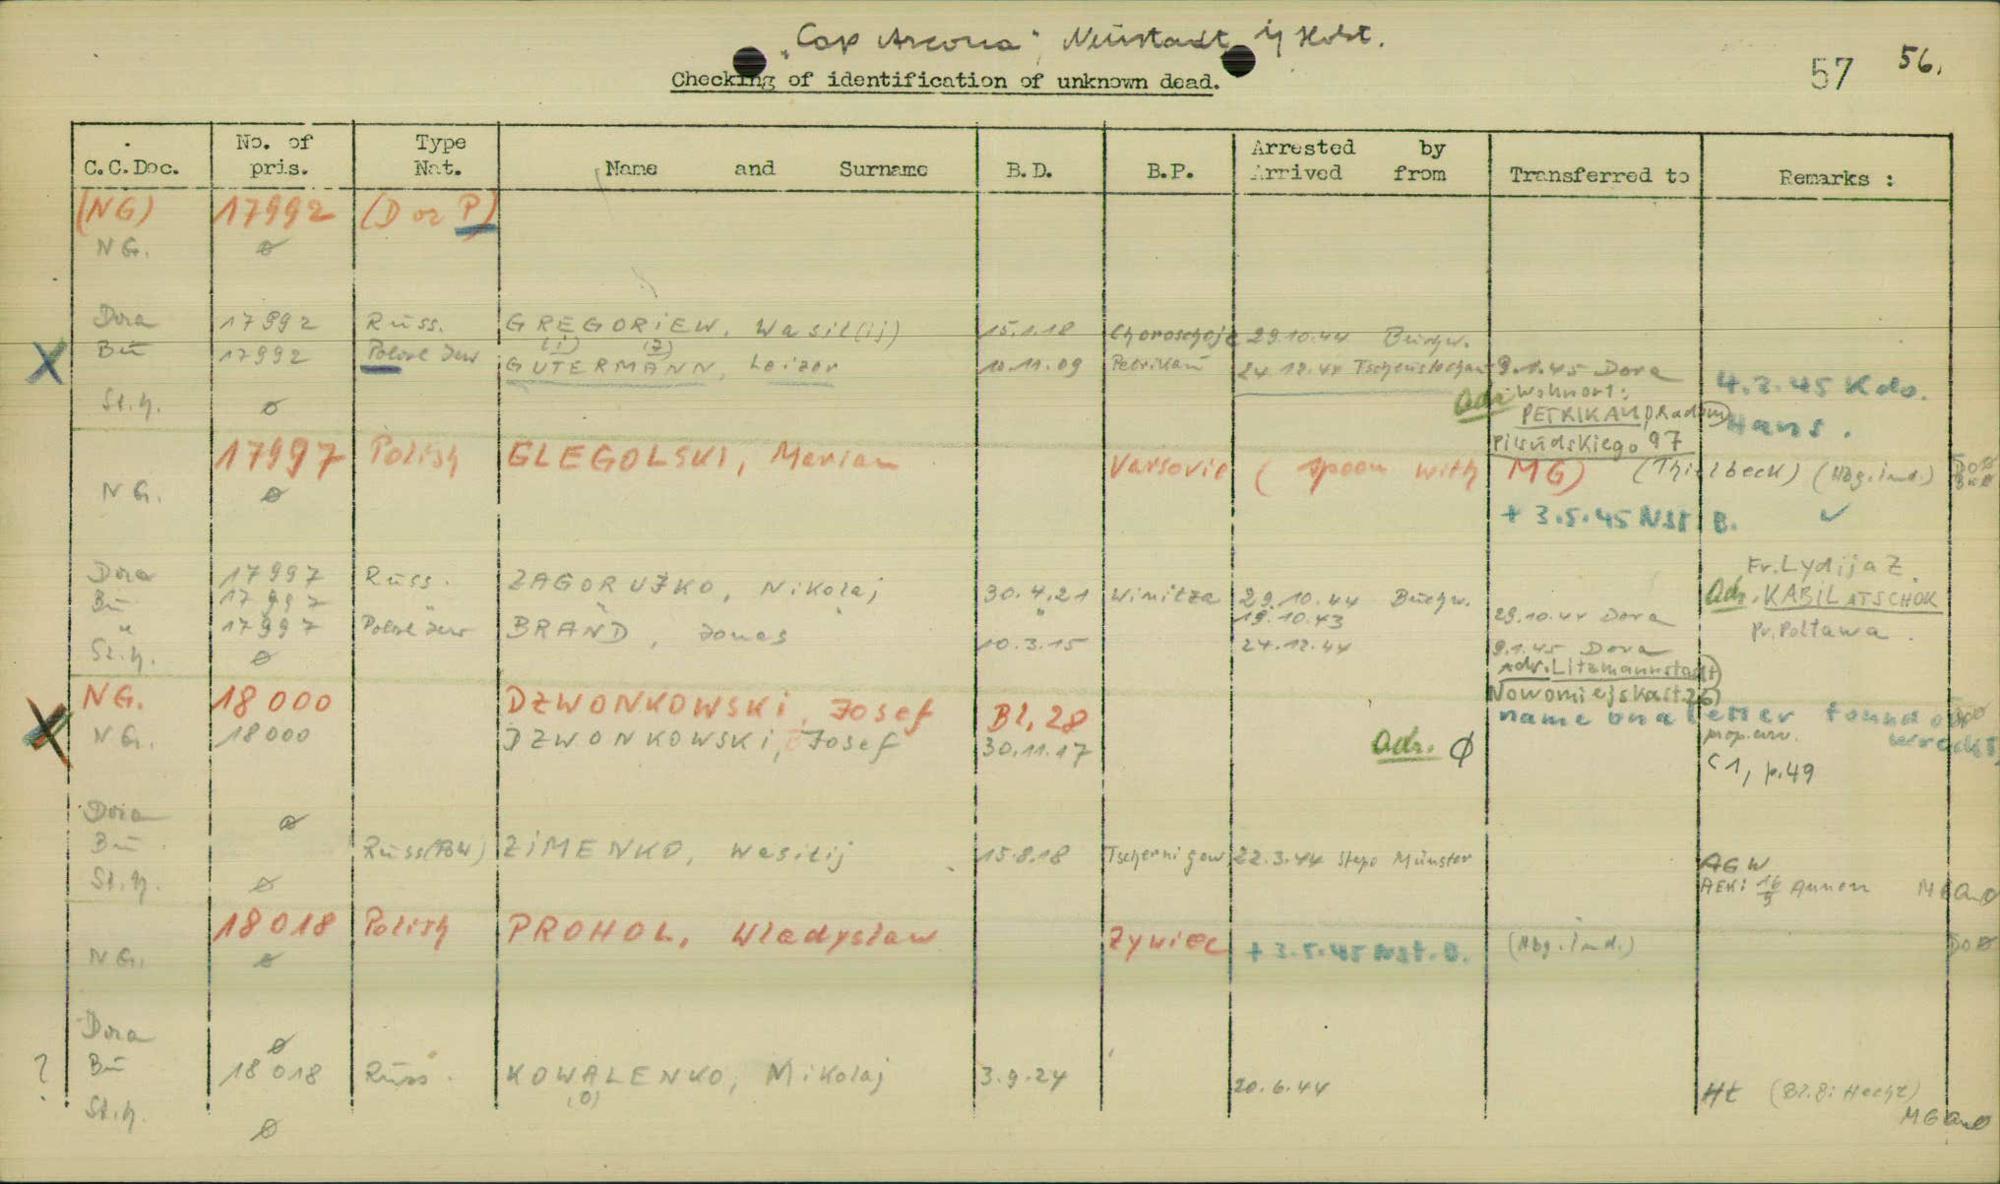 „Cap Arcona“, Neustadt i/ Holst.
Checking of identification of unknown dead.
57 56.
C.C.Doc. No. of pris. Type Nat. Name and Surname B.D. B.P. Arrested by Arrived from Transferred to Remarks :
(NG) 17992 (D or P)
NG. ø
Dora 17992 Russ. GREGORiEW, Wasil(ij) 15.1.18 29.10.44 Buchw.
(i) (z)
Bu 17992 GUTERMANN, Leizor 10.11.09 Petrikau 24.12.44 9.1.45 Dora
4.2.45 Kdo.
St.h. ø Adr. Wohnort:
PETRIKAU, Radom Hans.
Pilsudskiego 97
17997 Polish GLEGOLSKI, Marian Varsovie ( spoon with MG) (Thielbeck) (Hbg.ind.)
NG. ø
+ 3.5.45 Nst B. ✓
Fr. Lydija Z.
Dora 17997 Russ. ZAGORUŽKO, Nikolaj 30.4.21 Winitza 29.10.44 Buchw. Adr. KABILATSCHOK
Bu 17997 " " " 19.10.43 29.10.44 Dora
" 17997 BRAND, Jonas 10.3.15 24.12.44 9.1.45 Dora Pr. Poltawa.
St.h. ø
Adr. Litzmannstadt
Nowomiejska
NG. 18000 DZWONKOWSKi, Josef Bl, 28 name on a letter found on wreckt
NG. 18000 DZWONKOWSKi, Josef 30.11.17 Adr. ø
C1, p.49
Dora ø
Bu Russ ZiMENKO, Wasilij 15.8.18 Tschernigow 22.3.44 Stapo Münster AGW
St.h. ø AEK: 16/9 Annen
18018 Polish PROHOL, Wladyslaw Zywiec + 3.5.45 Nst. B. (Hbg.ind.)
NG. ø
Dora ø
? Bu 18018 Russ. KOWALENKO, Mikolaj 3.9.24 20.6.44 Ht
(O)
St.h. ø